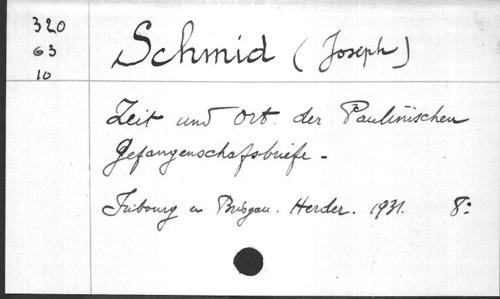 320
63
10
Schmid (Joseph)
Zeit und Ort der Paulinischen
Gefangenschafsbriefe -
Fribourg en Brisgau. Herder. 1931. 8: